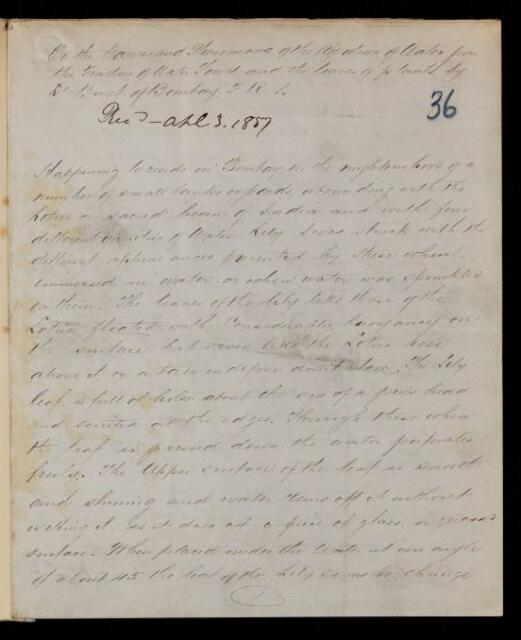 On the Causes and Phenomena of the Repulsion of Water from
the Feathers of Water Fowl and the leaves of plants by
Dr Buist of Bombay F.R.S.
36
Recd - Apl 3. 1857
Happening to reside in Bombay in the neighbourhood of a
number of small tanks or ponds abounding with the
Lotus or sacred bean of India and with four
different varieties of Water Lily I was struck with the
different appearances presented by these when
immersed in water or when water was sprinkled
on them. The leaves of the lily like those of the
Lotus floated with Considerable buoyancy on
the surface, but never like the Lotus rose
above it on a tall independent stem. The Lily
leaf is full of holes about the size of a pins head
and serrated at the edges. Through these when
the leaf is pressed down the water perforates
freely. The Upper surface of the leaf is smooth
and shining and water runs off it without
wetting it as it does off a piece of glass or greased
surface. When placed under the Water at an angle
of about 45 the leaf of the Lily seems to change
1